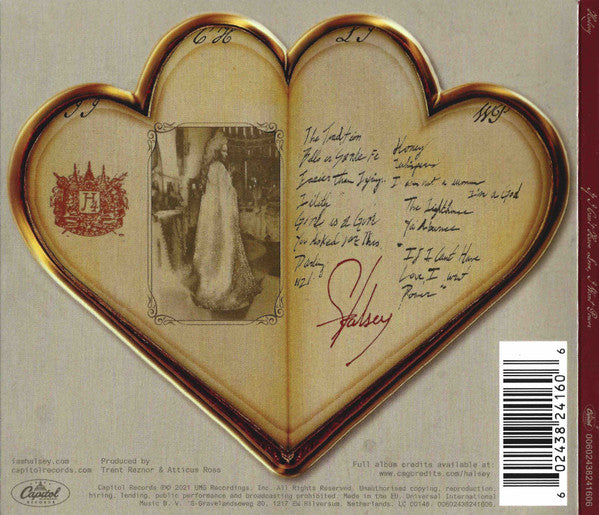 JJ
C H
L J
WP
JH4
The Tradition
Bells in Santa Fe
Easier than Lying
Lilith
Girl is a Gun
You Asked For This
Darling
1121
Honey
Whispers
I am not a woman
I'm a God
The Lighthouse
Ya'aburnee
"If I Can't Have
Love, I want
Power"
Halsey
iamhalsey.com
capitolrecords.com
Produced by
Trent Reznor & Atticus Ross
Full album credits available at:
www.cmgcredits.com/halsey
Capitol Records ℗ © 2021 UMG Recordings, Inc. All Rights Reserved. Unauthorised copying, reproduction,
hiring, lending, public performance and broadcasting prohibited. Made in the EU. Universal International
Music B.V. 's-Gravelandseweg 80, 1217 EW Hilversum, Netherlands. LC 00148 00602438241606
Capitol
RECORDS
6 02438 24160 6
Halsey
If I Can't Have Love, I Want Power
Capitol
00602438241606